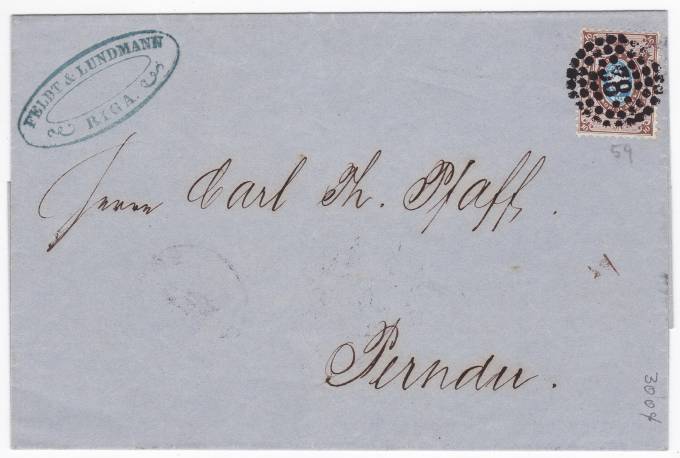 FELDT & LUNDMANN
RIGA.
58
59
Herrn Carl Th. Pfaff.
Pernau.
3004